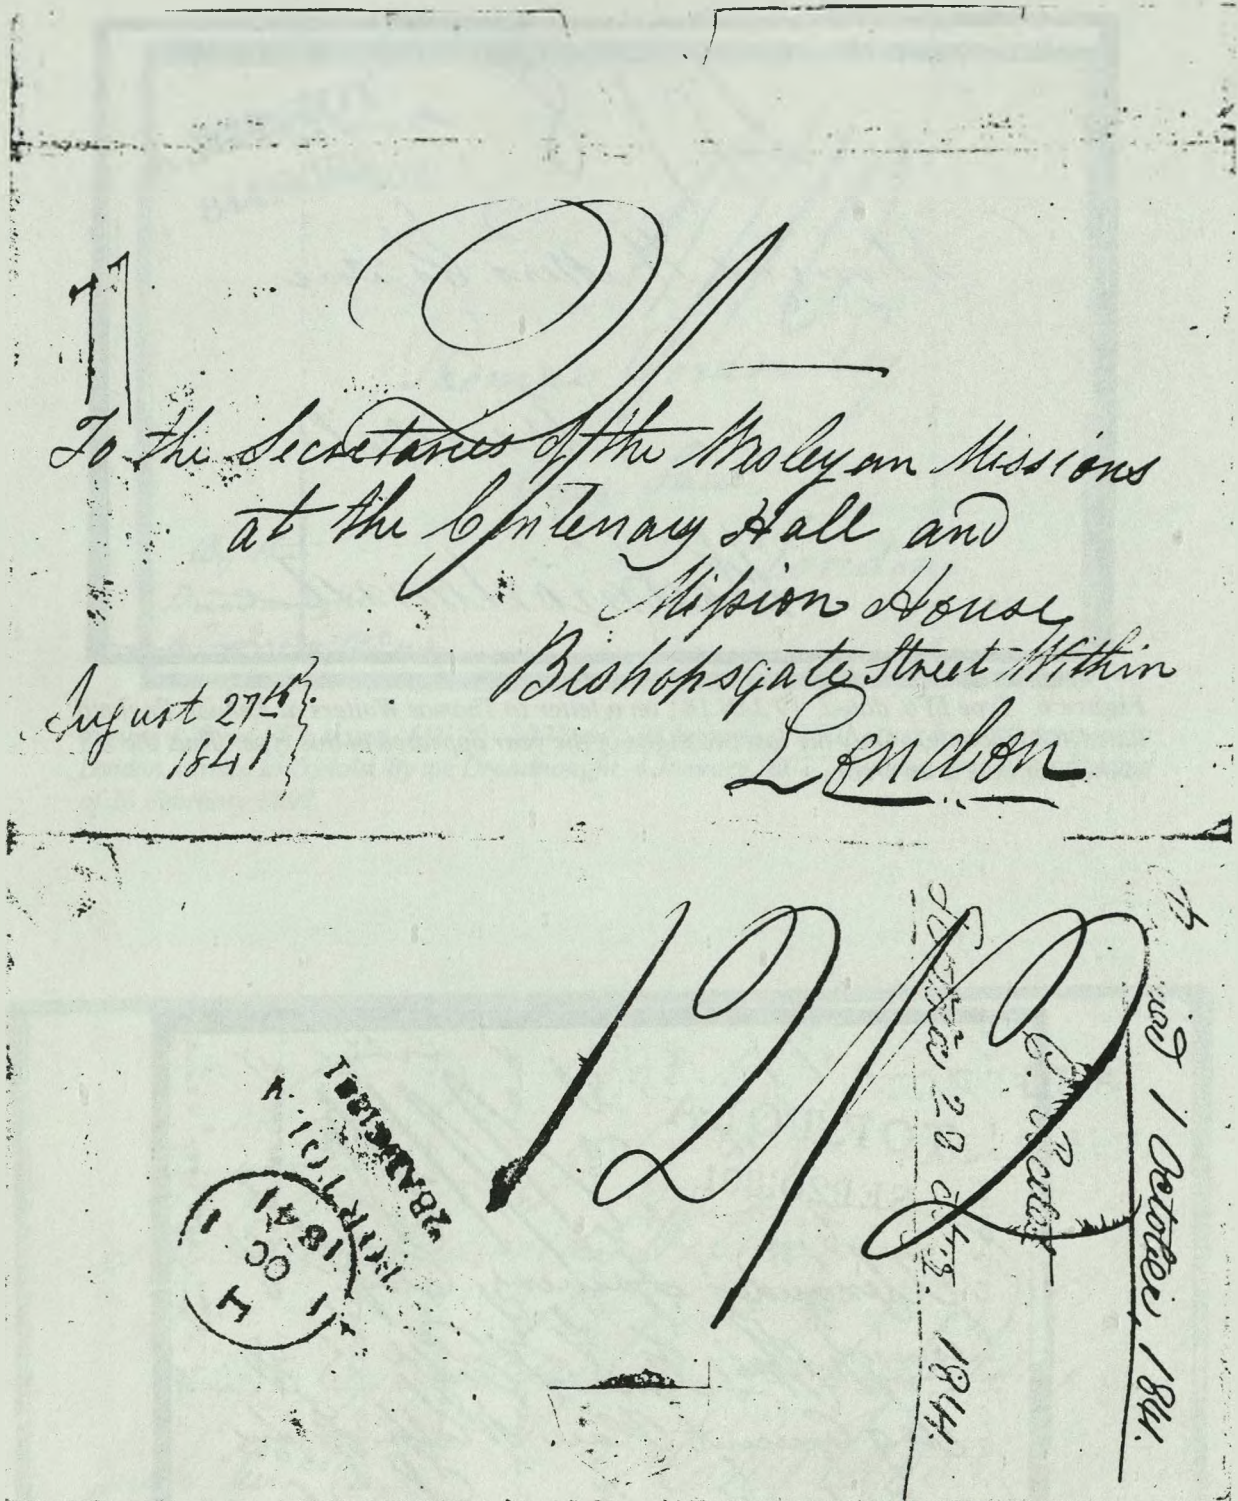 To the Secretaries of the Wesleyan Missions
at the Centenary Hall and
Mission House
Bishopsgate Street Within
London
August 27th
1841
2/
1 2/2
28 AU 1841
TOR TOL V
1
OC 1
1841
1 October, 1841.
28 1841.